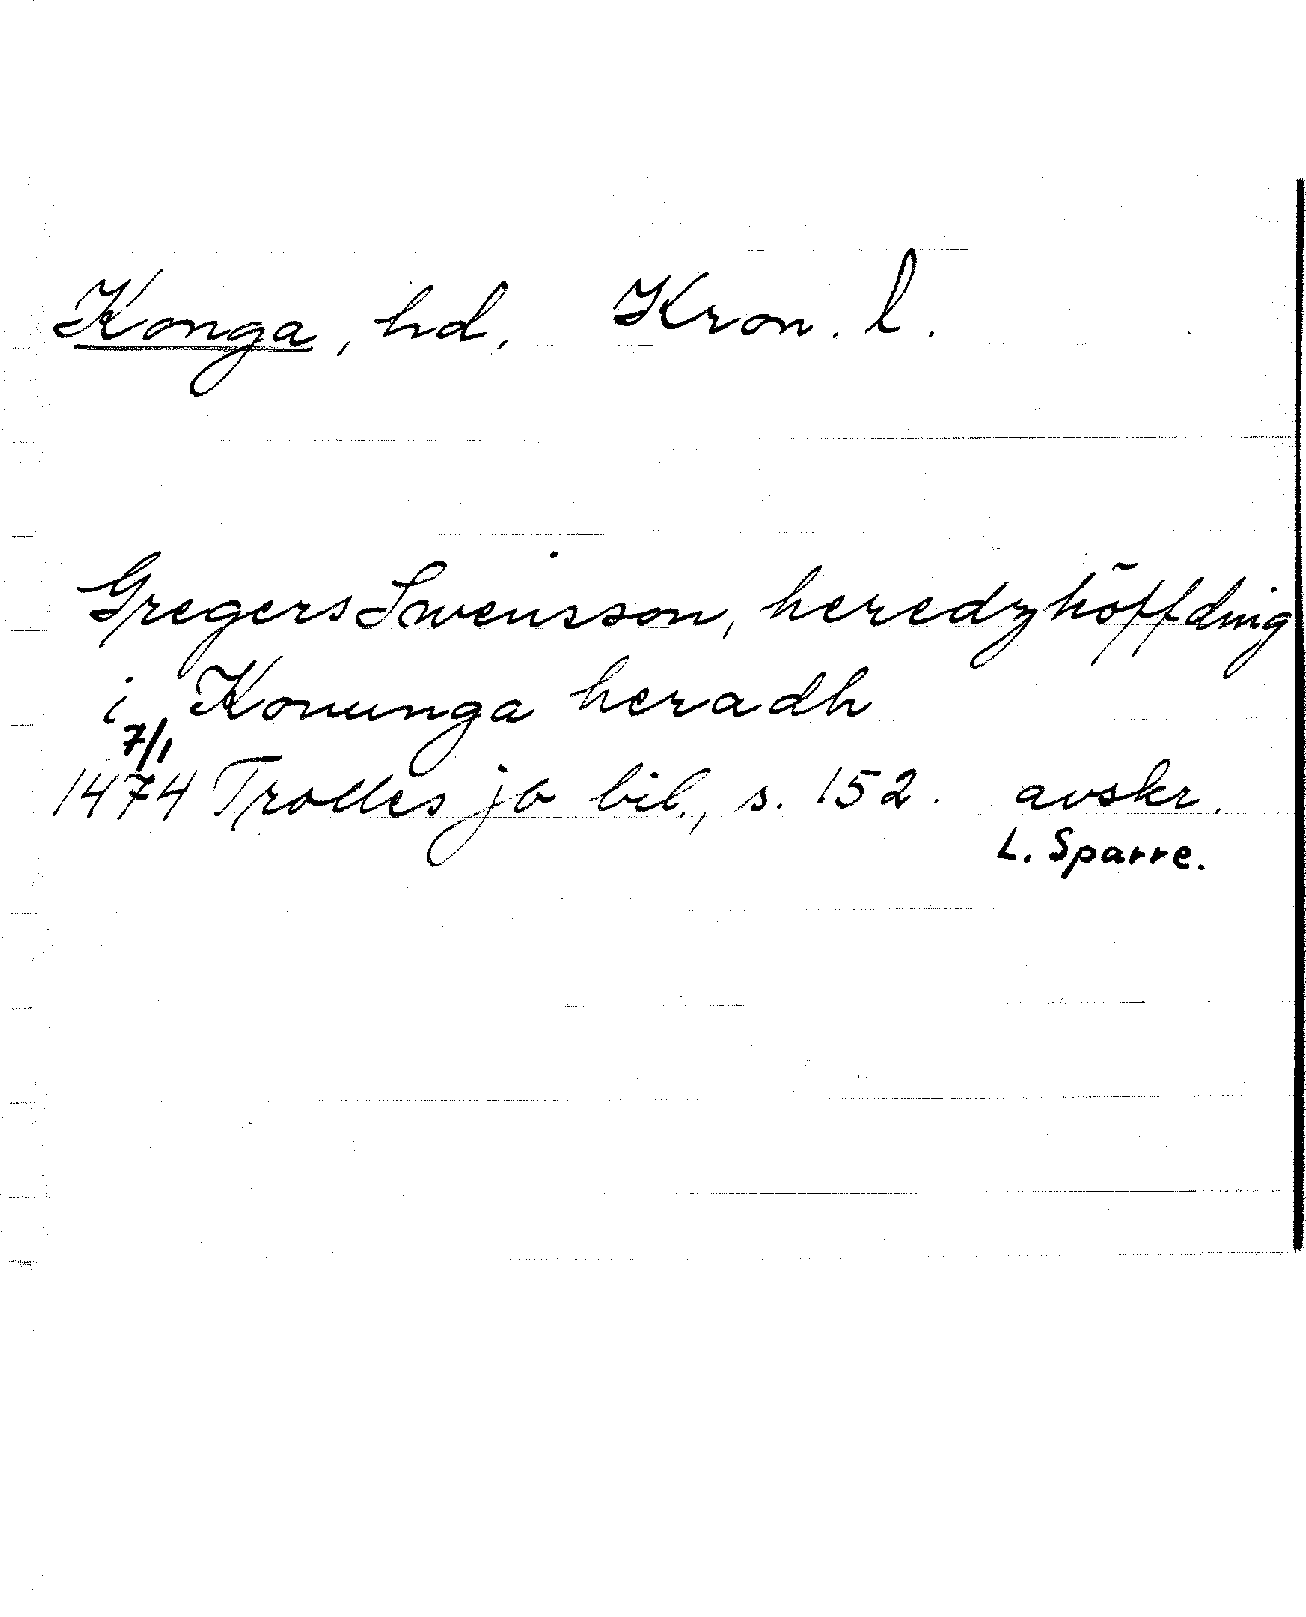 Konga, hd, Kron. l.
Gregers Swensson, heredzhöffding
i Konunga heradh
7/1
1474 Trolles jb bil., s. 152. avskr.
L. Sparre.